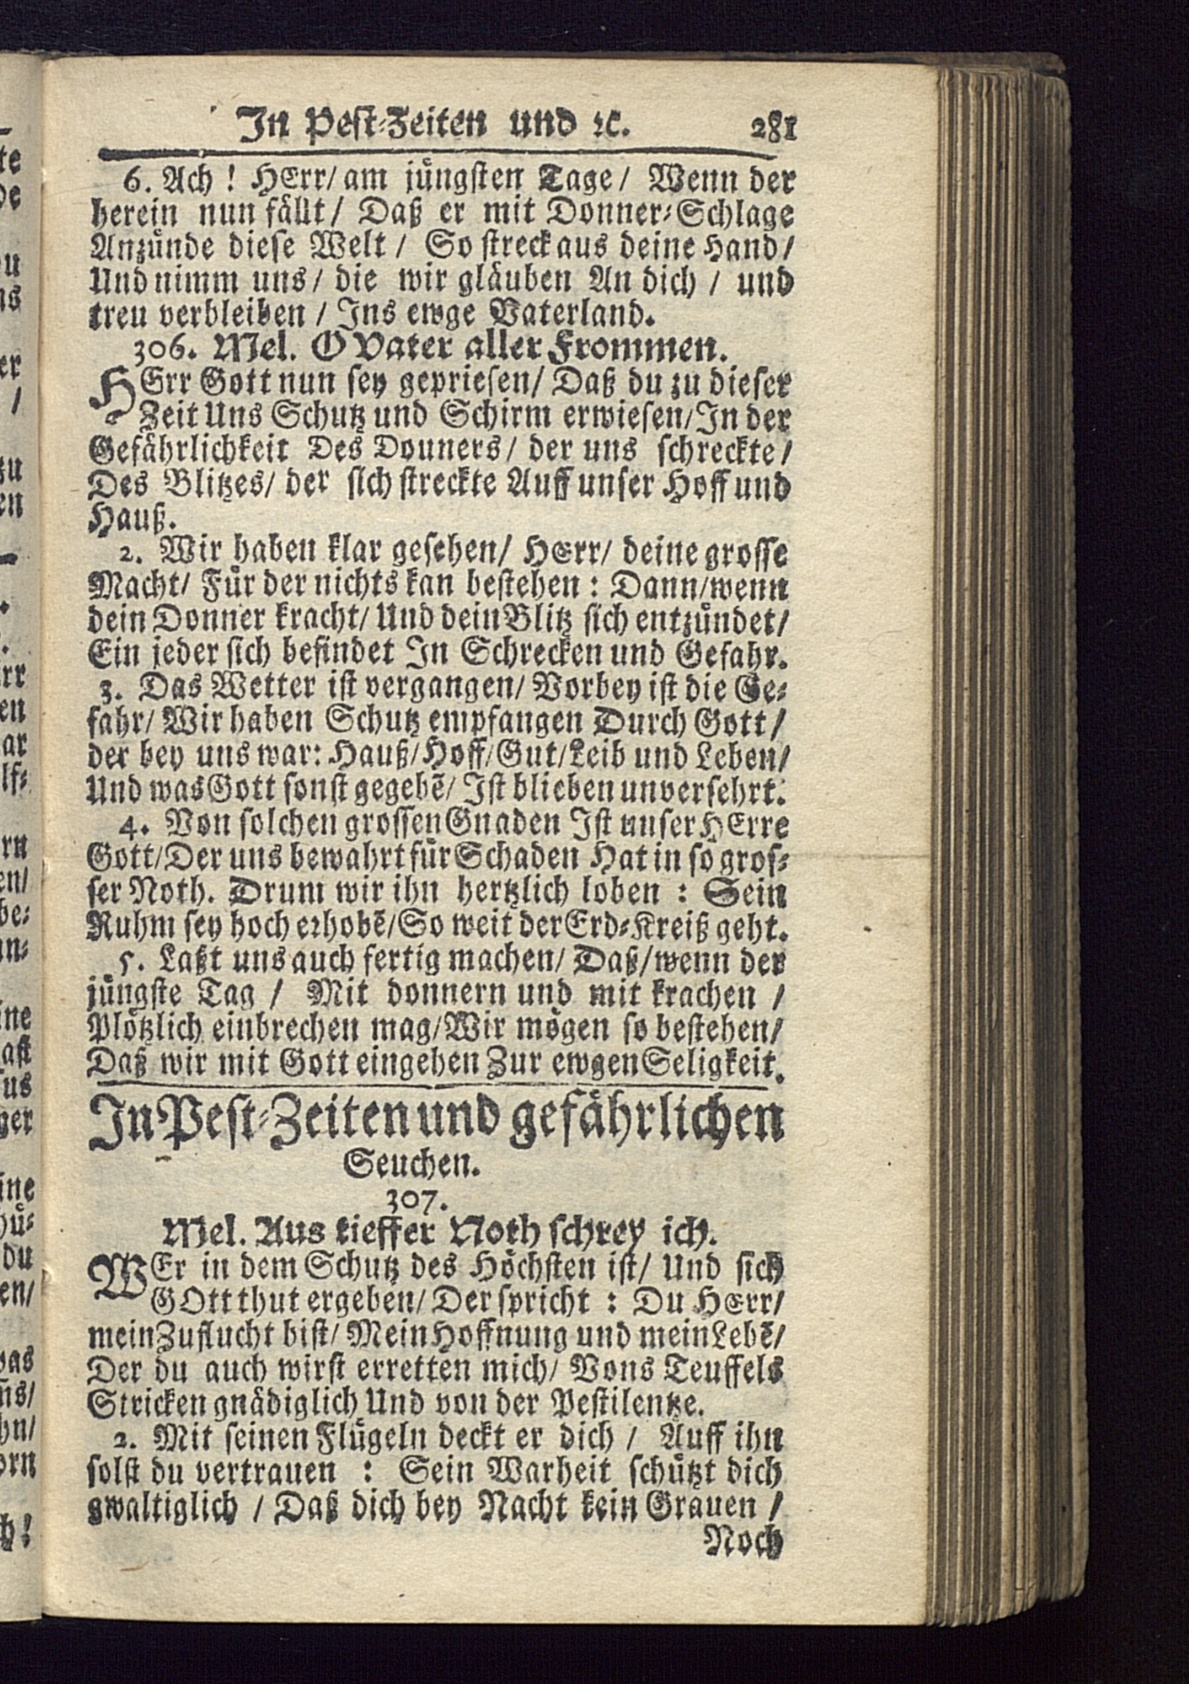 In Pest-Zeiten und ꝛc. 281
6. Ach! HErr/ am jüngsten Tage/ Wenn der
herein nun fällt/ Daß er mit Donner-Schlage
Anzünde diese Welt/ So streck aus deine Hand/
Und nimm uns/ die wir gläuben An dich/ und
treu verbleiben/ Ins ewge Vaterland.
306. Mel. O Vater aller Frommen.
HErr Gott nun sey gepriesen/ Daß du zu dieser
Zeit Uns Schutz und Schirm erwiesen/ In der
Gefährlichkeit Des Douners/ der uns schreckte/
Des Blitzes/ der sich streckte Auff unser Hoff und
Hauß.
2. Wir haben klar gesehen/ HErr/ deine grosse
Macht/ Für der nichts kan bestehen: Dann/ wenn
dein Donner kracht/ Und dein Blitz sich entzündet/
Ein jeder sich befindet In Schrecken und Gefahr.
3. Das Wetter ist vergangen/ Vorbey ist die Ge-
fahr/ Wir haben Schutz empfangen Durch Gott/
der bey uns war: Hauß/ Hoff/ Gut/ Leib und Leben/
Und was Gott sonst gegebē/ Ist blieben unversehrt.
4. Von solchen grossen Gnaden Ist unser HErre
Gott/ Der uns bewahrt für Schaden Hat in so gros-
ser Noth. Drum wir ihn hertzlich loben: Sein
Ruhm sey hoch erhobē/ So weit der Erd-Kreiß geht.
5. Laßt uns auch fertig machen/ Daß/ wenn der
jüngste Tag/ Mit donnern und mit krachen/
Plötzlich einbrechen mag/ Wir mögen so bestehen/
Daß wir mit Gott eingehen Zur ewgen Seligkeit.
In Pest-Zeiten und gefährlichen
Seuchen.
307.
Mel. Aus tieffer Noth schrey ich.
WEr in dem Schutz des Höchsten ist/ Und sich
GOtt thut ergeben/ Der spricht: Du HErr/
mein Zuflucht bist/ Mein Hoffnung und mein Lebē/
Der du auch wirst erretten mich/ Vons Teuffels
Stricken gnädiglich Und von der Pestilentze.
2. Mit seinen Flügeln deckt er dich/ Auff ihn
solst du vertrauen: Sein Warheit schützt dich
gwaltiglich/ Daß dich bey Nacht kein Grauen/
Noch